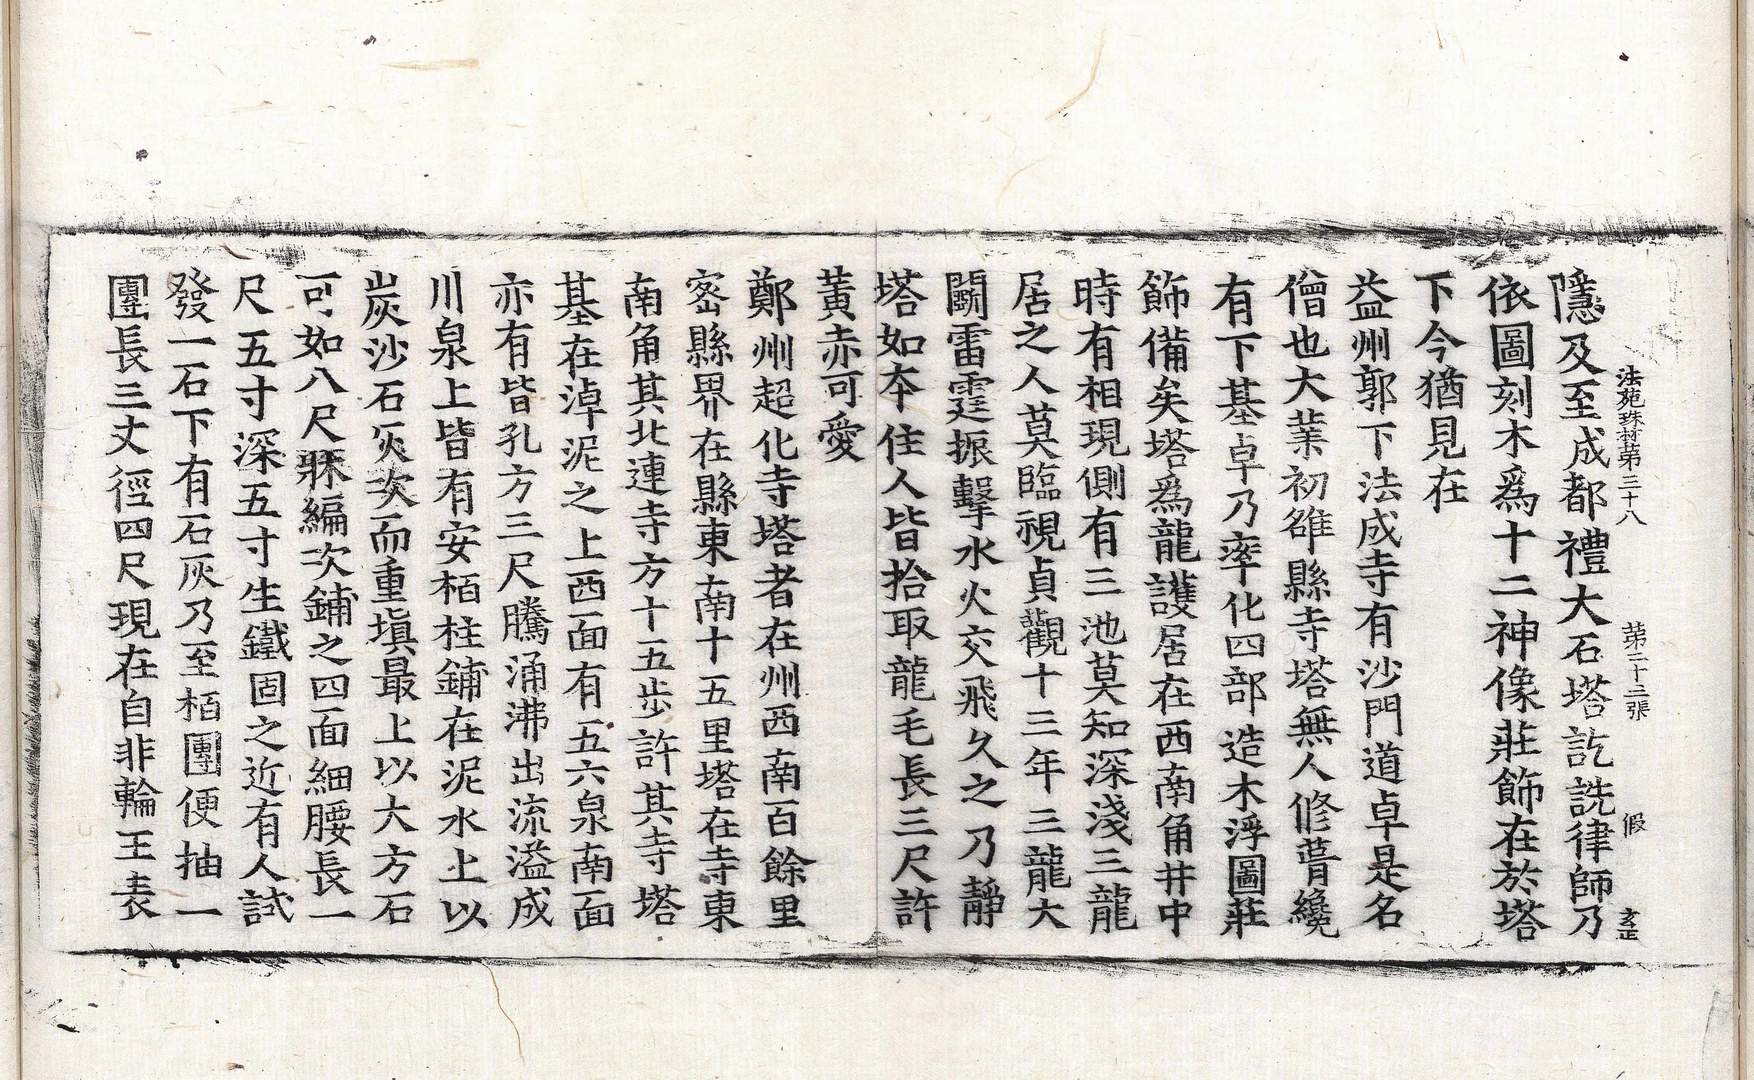 法苑珠林第三十八　第二十三張　假　玄正
隱及至成都禮大石塔訖詵律師乃
依圖刻木爲十二神像莊飾在於塔
下今猶見在
益州郭下法成寺有沙門道卓是名
僧也大業初雒縣寺塔無人修葺纔
有下基卓乃率化四部造木浮圖莊
飾備矣塔爲龍護居在西南角井中
時有相現側有三池莫知深淺三龍
居之人莫臨視貞觀十三年三龍大
鬭雷霆振擊水火交飛久之乃靜
塔如本住人皆拾取龍毛長三尺許
黃赤可愛
鄭州超化寺塔者在州西南百餘里
密縣界在縣東南十五里塔在寺東
南角其北連寺方十五步許其寺塔
基在淖泥之上西面有五六泉南面
亦有皆孔方三尺騰涌沸出流溢成
川泉上皆有安栢柱鋪在泥水上以
炭沙石灰次而重塡最上以大方石
可如八尺牀編次鋪之四面細腰長一
尺五寸深五寸生鐵固之近有人試
發一石下有石灰乃至栢團便抽一
團長三丈徑四尺現在自非輪王表